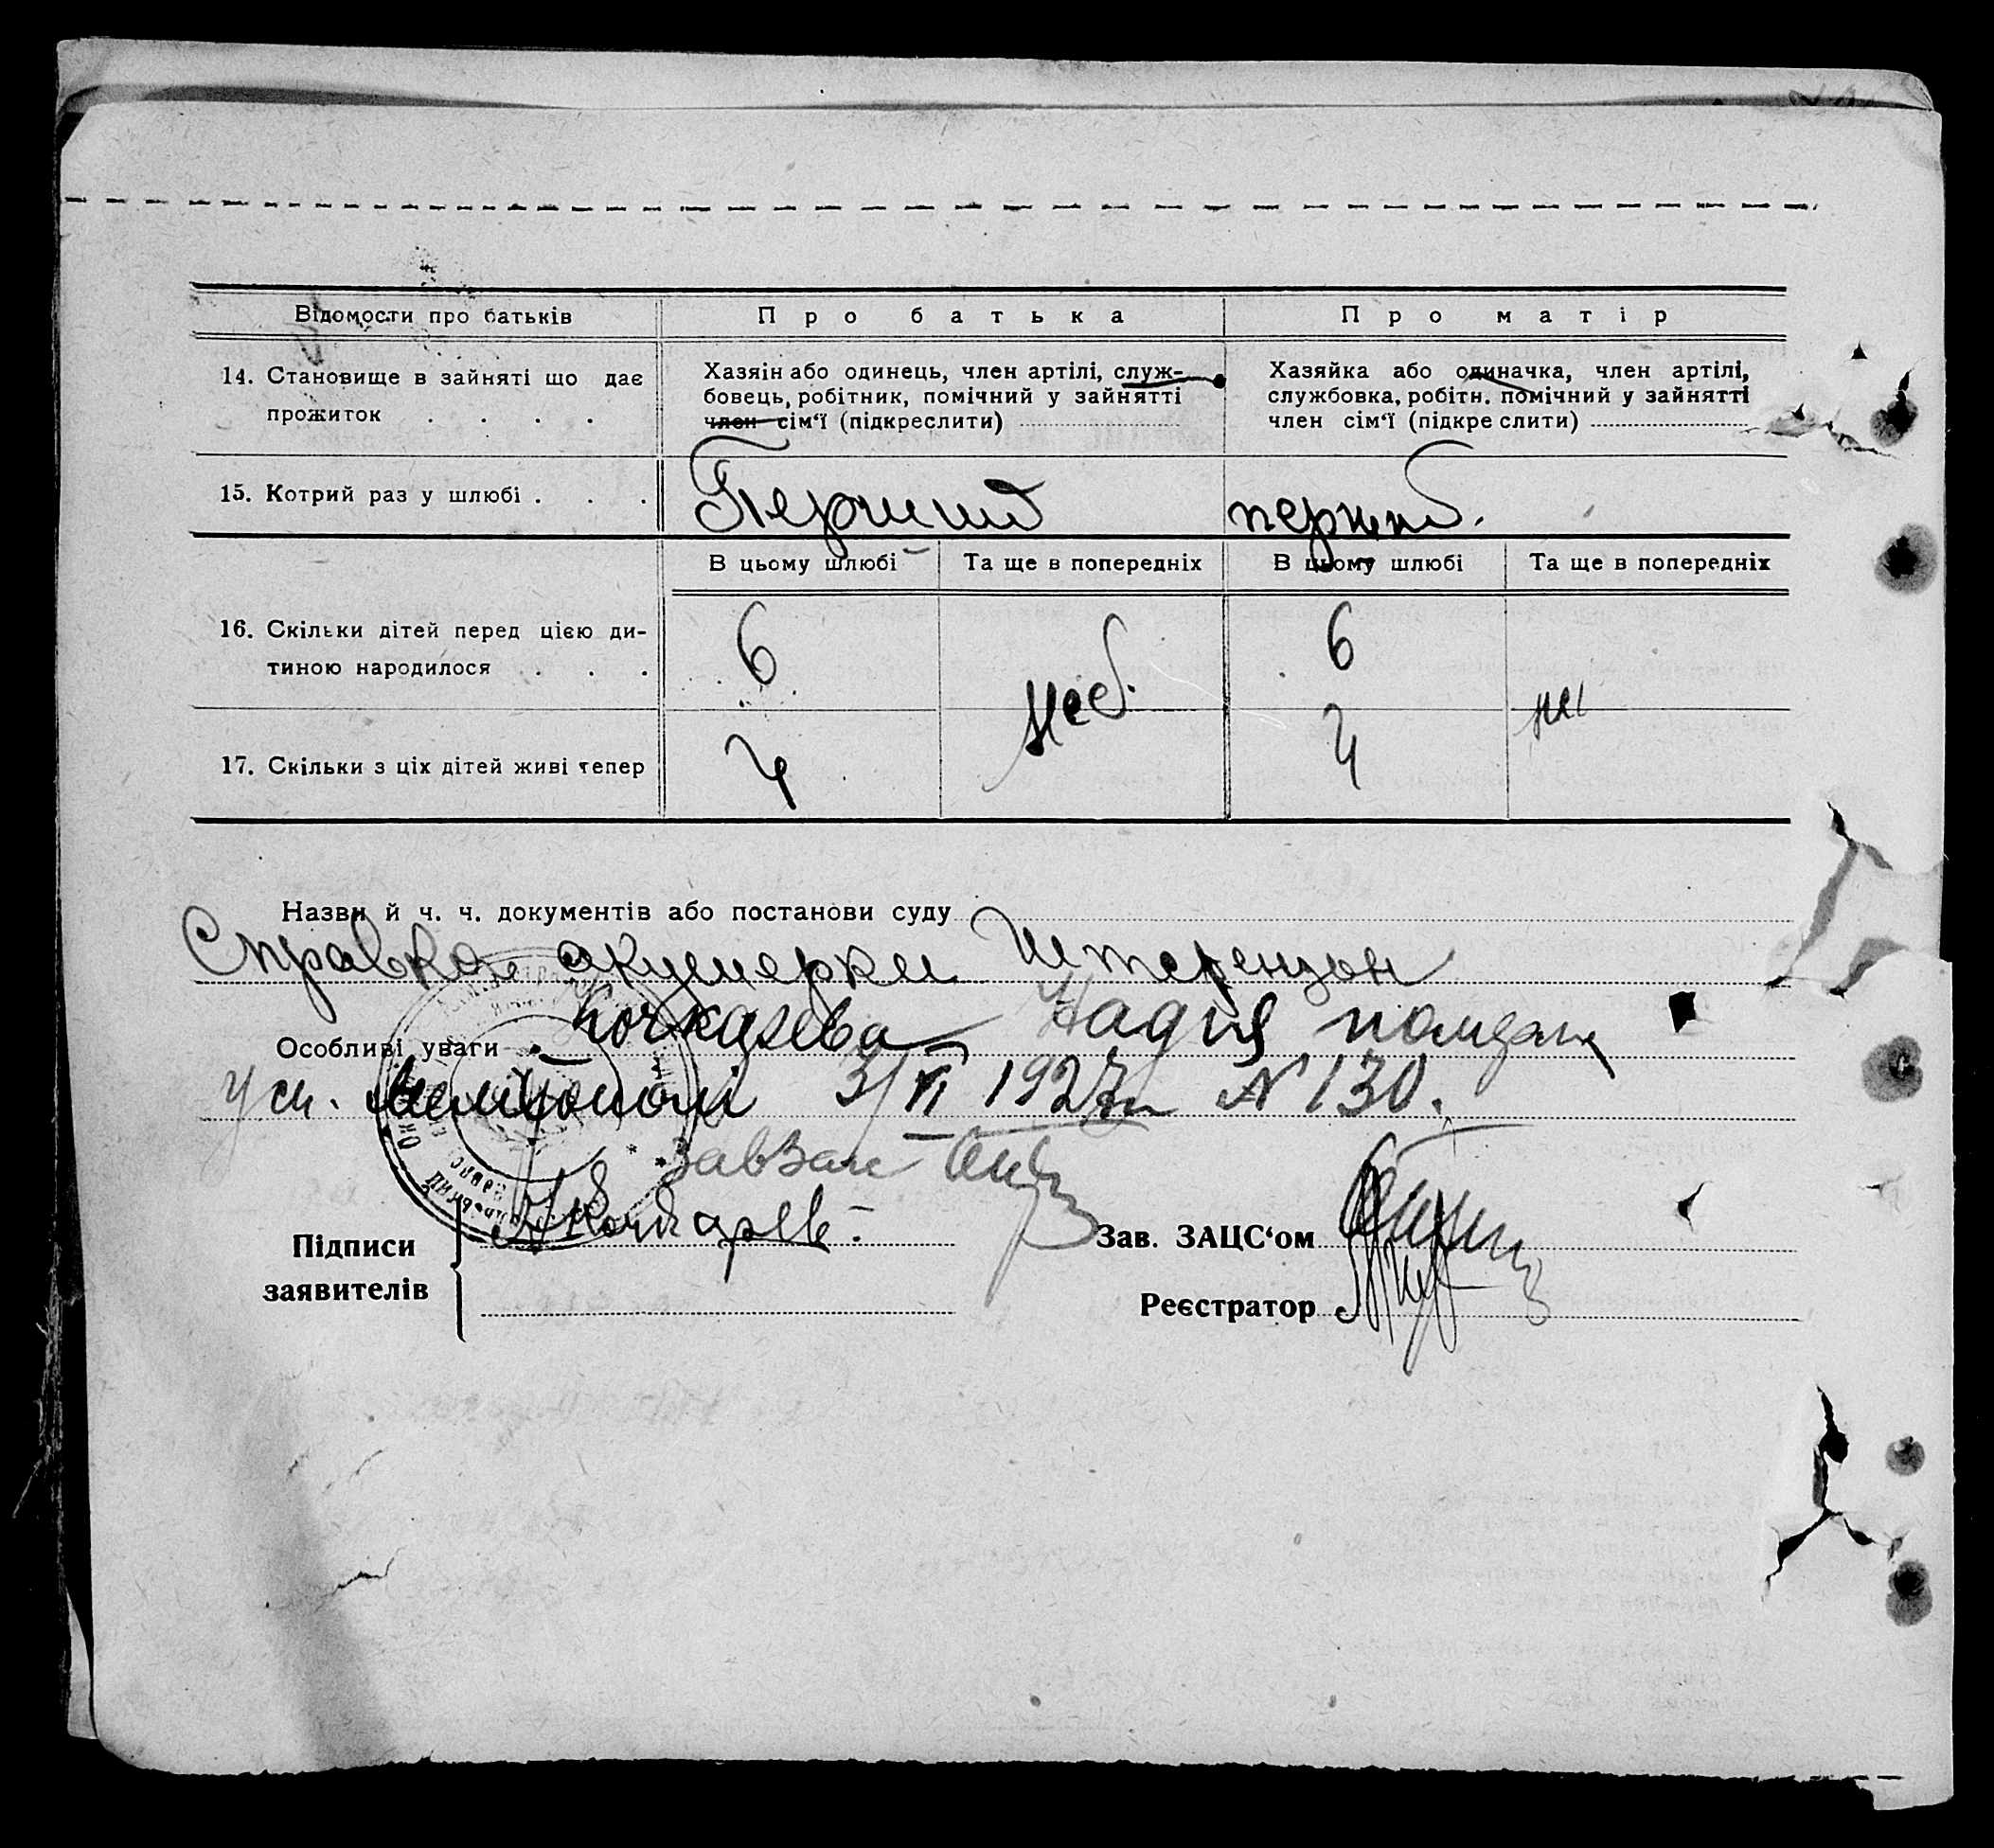 Відомости про батьків
Про батька
Про матір
14. Становище в зайняті що дає
прожиток . . . .
Хазяін або одинець, член артілі, служ-
бовець, робітник, помічний у зайнятті
член сім‘ї (підкреслити)
Хазяйка або одиначка, член артілі,
службовка, робітн. помічний у зайнятті
член сім‘ї (підкреслити)
15. Котрий раз у шлюбі . . .
Перший
перший.
В цьому шлюбі
Та ще в попередніх
В цьому шлюбі
Та ще в попередніх
16. Скільки дітей перед цією ди-
тиною народилося . . .
6
6
17. Скільки з ціх дітей живі тепер
4
4
Назви й ч. ч. документів або постанови суду
Справка акушерки Штерензон
Надія
Особливі уваги
у см. 3/VI 1927 N 130.
Підписи
заявителів
Зав. ЗАЦС‘ом
Реєстратор